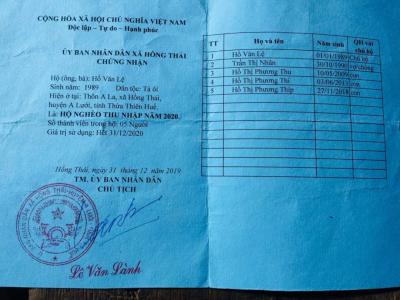 CỘNG HÒA XÃ HỘI CHỦ NGHĨA VIỆT NAM
Độc lập – Tự do – Hạnh phúc
ỦY BAN NHÂN DÂN XÃ HỒNG THÁI
CHỨNG NHẬN
Hộ (ông, bà): Hồ Văn Lệ
Sinh năm: 1989 Dân tộc: Tà ôi
Hiện ở tại: Thôn A La, xã Hồng Thái,
huyện A Lưới, tỉnh Thừa Thiên Huế.
Là: HỘ NGHÈO THU NHẬP NĂM 2020.
Số thành viên trong hộ: 05 Người
Giá trị sử dụng: Hết 31/12/2020
Hồng Thái, ngày 31 tháng 12 năm 2019
TM. ỦY BAN NHÂN DÂN
CHỦ TỊCH
Lê Văn Lành
TT Họ và tên Năm sinh QH với chủ hộ
1 Hồ Văn Lệ 01/01/1989 Chủ hộ
2 Trần Thị Nhân 30/10/1990 vợ/chồng
3 Hồ Thị Phương Thu 10/05/2009 con
4 Hồ Thị Phương 03/06/2013 con
5 Hồ Thị Phương Thúy 27/11/2018 con